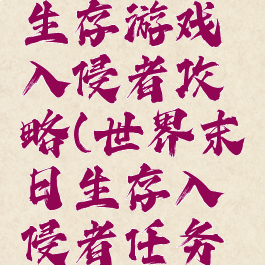 生存游戏
入侵者攻
略(世界末
日生存入
侵者任务